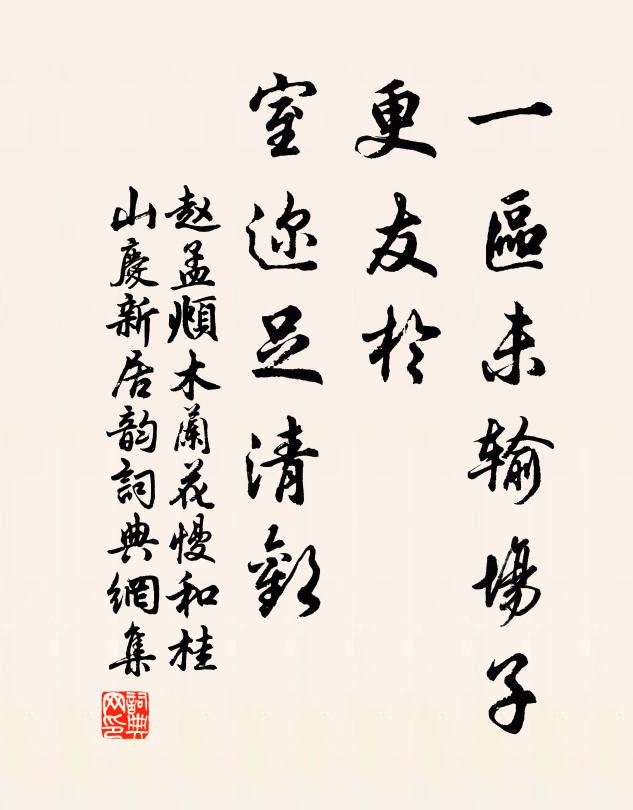 一區未輸揚子
更友於
室迩足清歡
赵孟頫木蘭花慢和桂
山慶新居韵詞典網集
詞典
网印